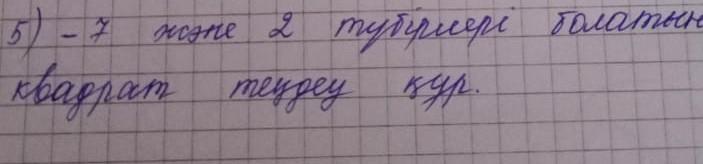 5) - 7 және 2 түбірлері болатын
квадрат теңдеу құр.